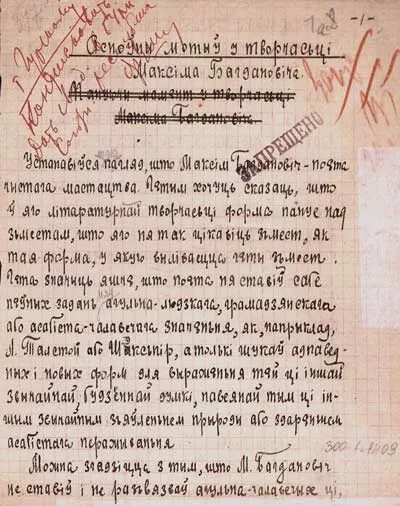 -1-
Асноўны мотыў у творчасьці
Максіма Багдановіча.
Пануючы момант у творчасьці
Максіма Багдановіча
ЗАПРЕЩЕНО
Устанавіўся пагляд, што Максім Багдановіч – поэта
чыстага мастацтва. Гэтым хочуць сказаць, што
ў яго літэратурнай творчасьці форма пануе над
зьместам, што яго ня так цікавіць зьмест, як
тая форма, у якую выліваецца гэты зьмест.
Гэта значыць яшчэ, што поэта ня ставіў сабе
пэўных задань агульна-людзкага, грамадзянскага
або асабіста-чалавечага значэньня, як, напрыклад,
Л. Талстой або Шэксьпір, а толькі шукаў адпавед-
ных і новых форм для выражэньня тэй ці іншай
звычайнай будзённай думкі, навеянай тым ці ін-
шым звычайным зьяўленьнем прыроды або здарэньнем
асабістага перажываньня.
Можна згадзіцца з тым, што М. Багдановіч
не ставіў і не разьвязваў агульна-чалавечых ці,